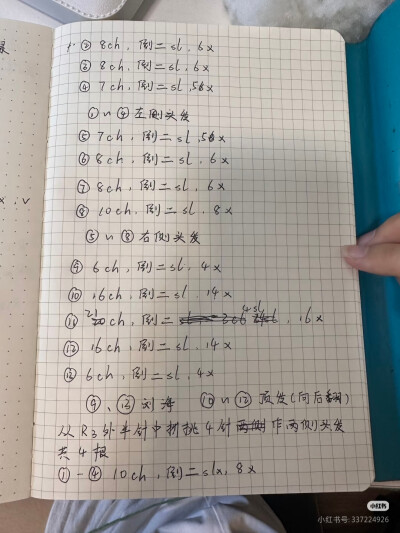 ② 8ch, 倒二sl, 6x
③ 8ch, 倒二sl, 6x
④ 7ch, 倒二sl, 5x
①~④左侧头发
⑤ 7ch, 倒二sl, 5x
⑥ 8ch, 倒二sl, 6x
⑦ 8ch, 倒二sl, 6x
⑧ 10ch, 倒二sl, 8x
⑤~⑧右侧头发
⑨ 6ch, 倒二sl, 4x
⑩ 16ch, 倒二sl, 14x
⑪ 21ch, 倒二 4sl, 16x
⑫ 16ch, 倒二sl, 14x
⑬ 6ch, 倒二sl, 4x
⑨、⑬刘海 ⑩~⑫顶发(向后翻)
从R3外半针中挑4针作两侧头发
共4根
①-④ 10ch, 倒二slx, 8x
小红书
小红书号: 337224926